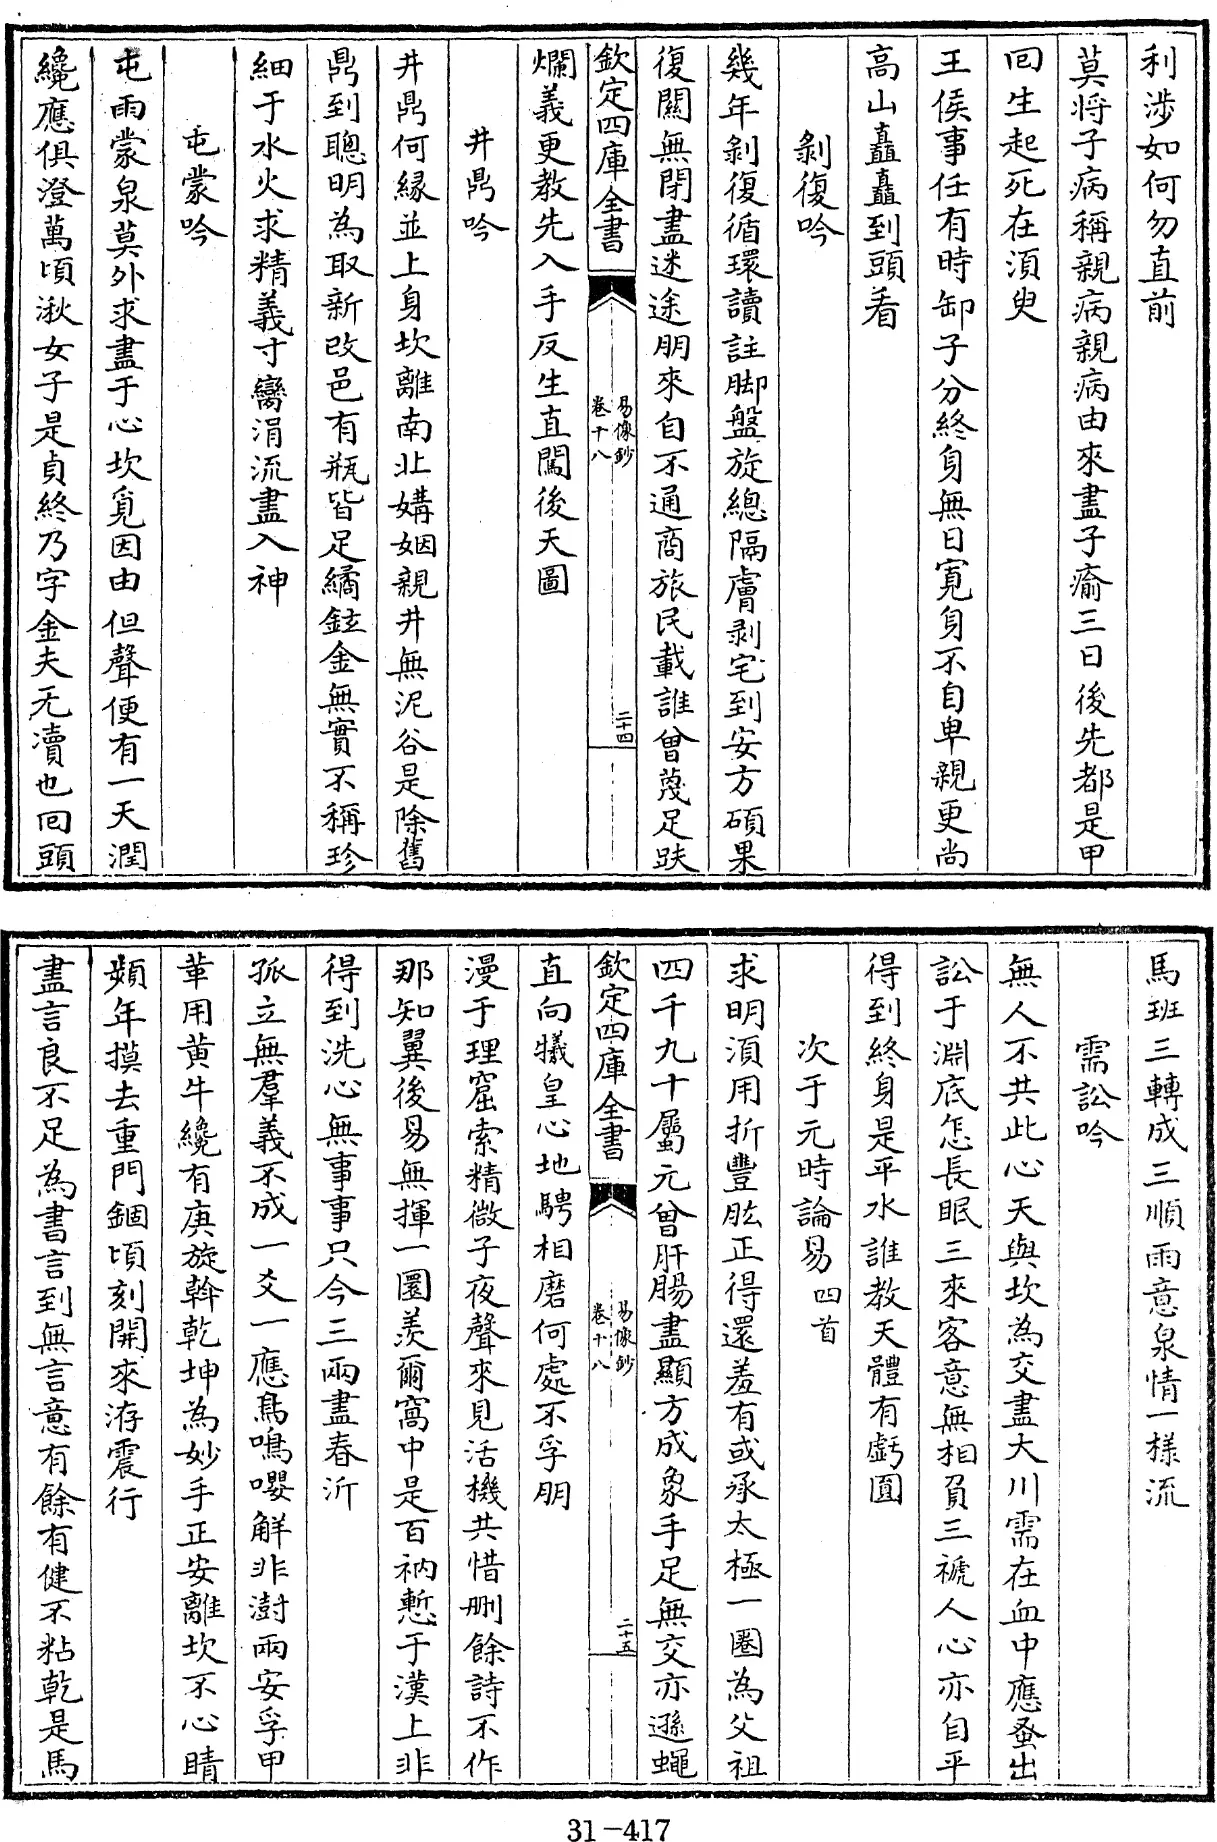 利涉如何勿直前
莫將子病稱親病親病由來盡子瘉三日後先都是甲
回生起死在須臾
王侯事任有時卸子分終身無日寛身不自卑親更尚
高山矗矗到頭看
剝復吟
幾年剝復循環讀註脚盤旋總隔膚剥宅到安方碩果
復關無閉盡迷途朋來自不通商旅民載誰曾蔑足趺
欽定四庫全書
易像鈔
卷十八
二十四
爛義更教先入手反生直闖後天圖
井鼎吟
井鼎何縁並上身坎離南北媾姻親井無泥谷是除舊
鼎到聰明為取新改邑有瓶皆足繘鉉金無實不稱珍
細于水火求精義寸臠涓流盡入神
屯蒙吟
屯雨蒙泉莫外求盡于心坎覓因由但聲便有一天潤
纔應俱澄萬頃湫女子是貞終乃字金夫无瀆也回頭
馬班三轉成三順雨意泉情一様流
需訟吟
無人不共此心天與坎為交盡大川需在血中應蚤出
訟于淵底怎長眠三來客意無相負三褫人心亦自平
得到終身是平水誰教天體有虧圓
次于元時論易 四首
求明須用折豐肱正得還羞有或承太極一圏為父祖
四千九十屬元曾肝腸盡顯方成象手足無交亦遜蠅
欽定四庫全書
易像鈔
卷十八
二十五
直向犧皇心地騁相磨何處不孚朋
漫于理窟索精微子夜聲來見活機共惜刪餘詩不作
那知翼後易無揮一圜羨爾窩中是百衲慙于漢上非
得到洗心無事事只今三兩盡春沂
孤立無羣義不成一爻一應鳥鳴嚶解非澍雨安孚甲
革用黄牛纔有庚旋斡乾坤為妙手正安離坎不心晴
頻年摸去重門錮頃刻開來洊震行
盡言良不足為書言到無言意有餘有健不粘乾是馬
31-417